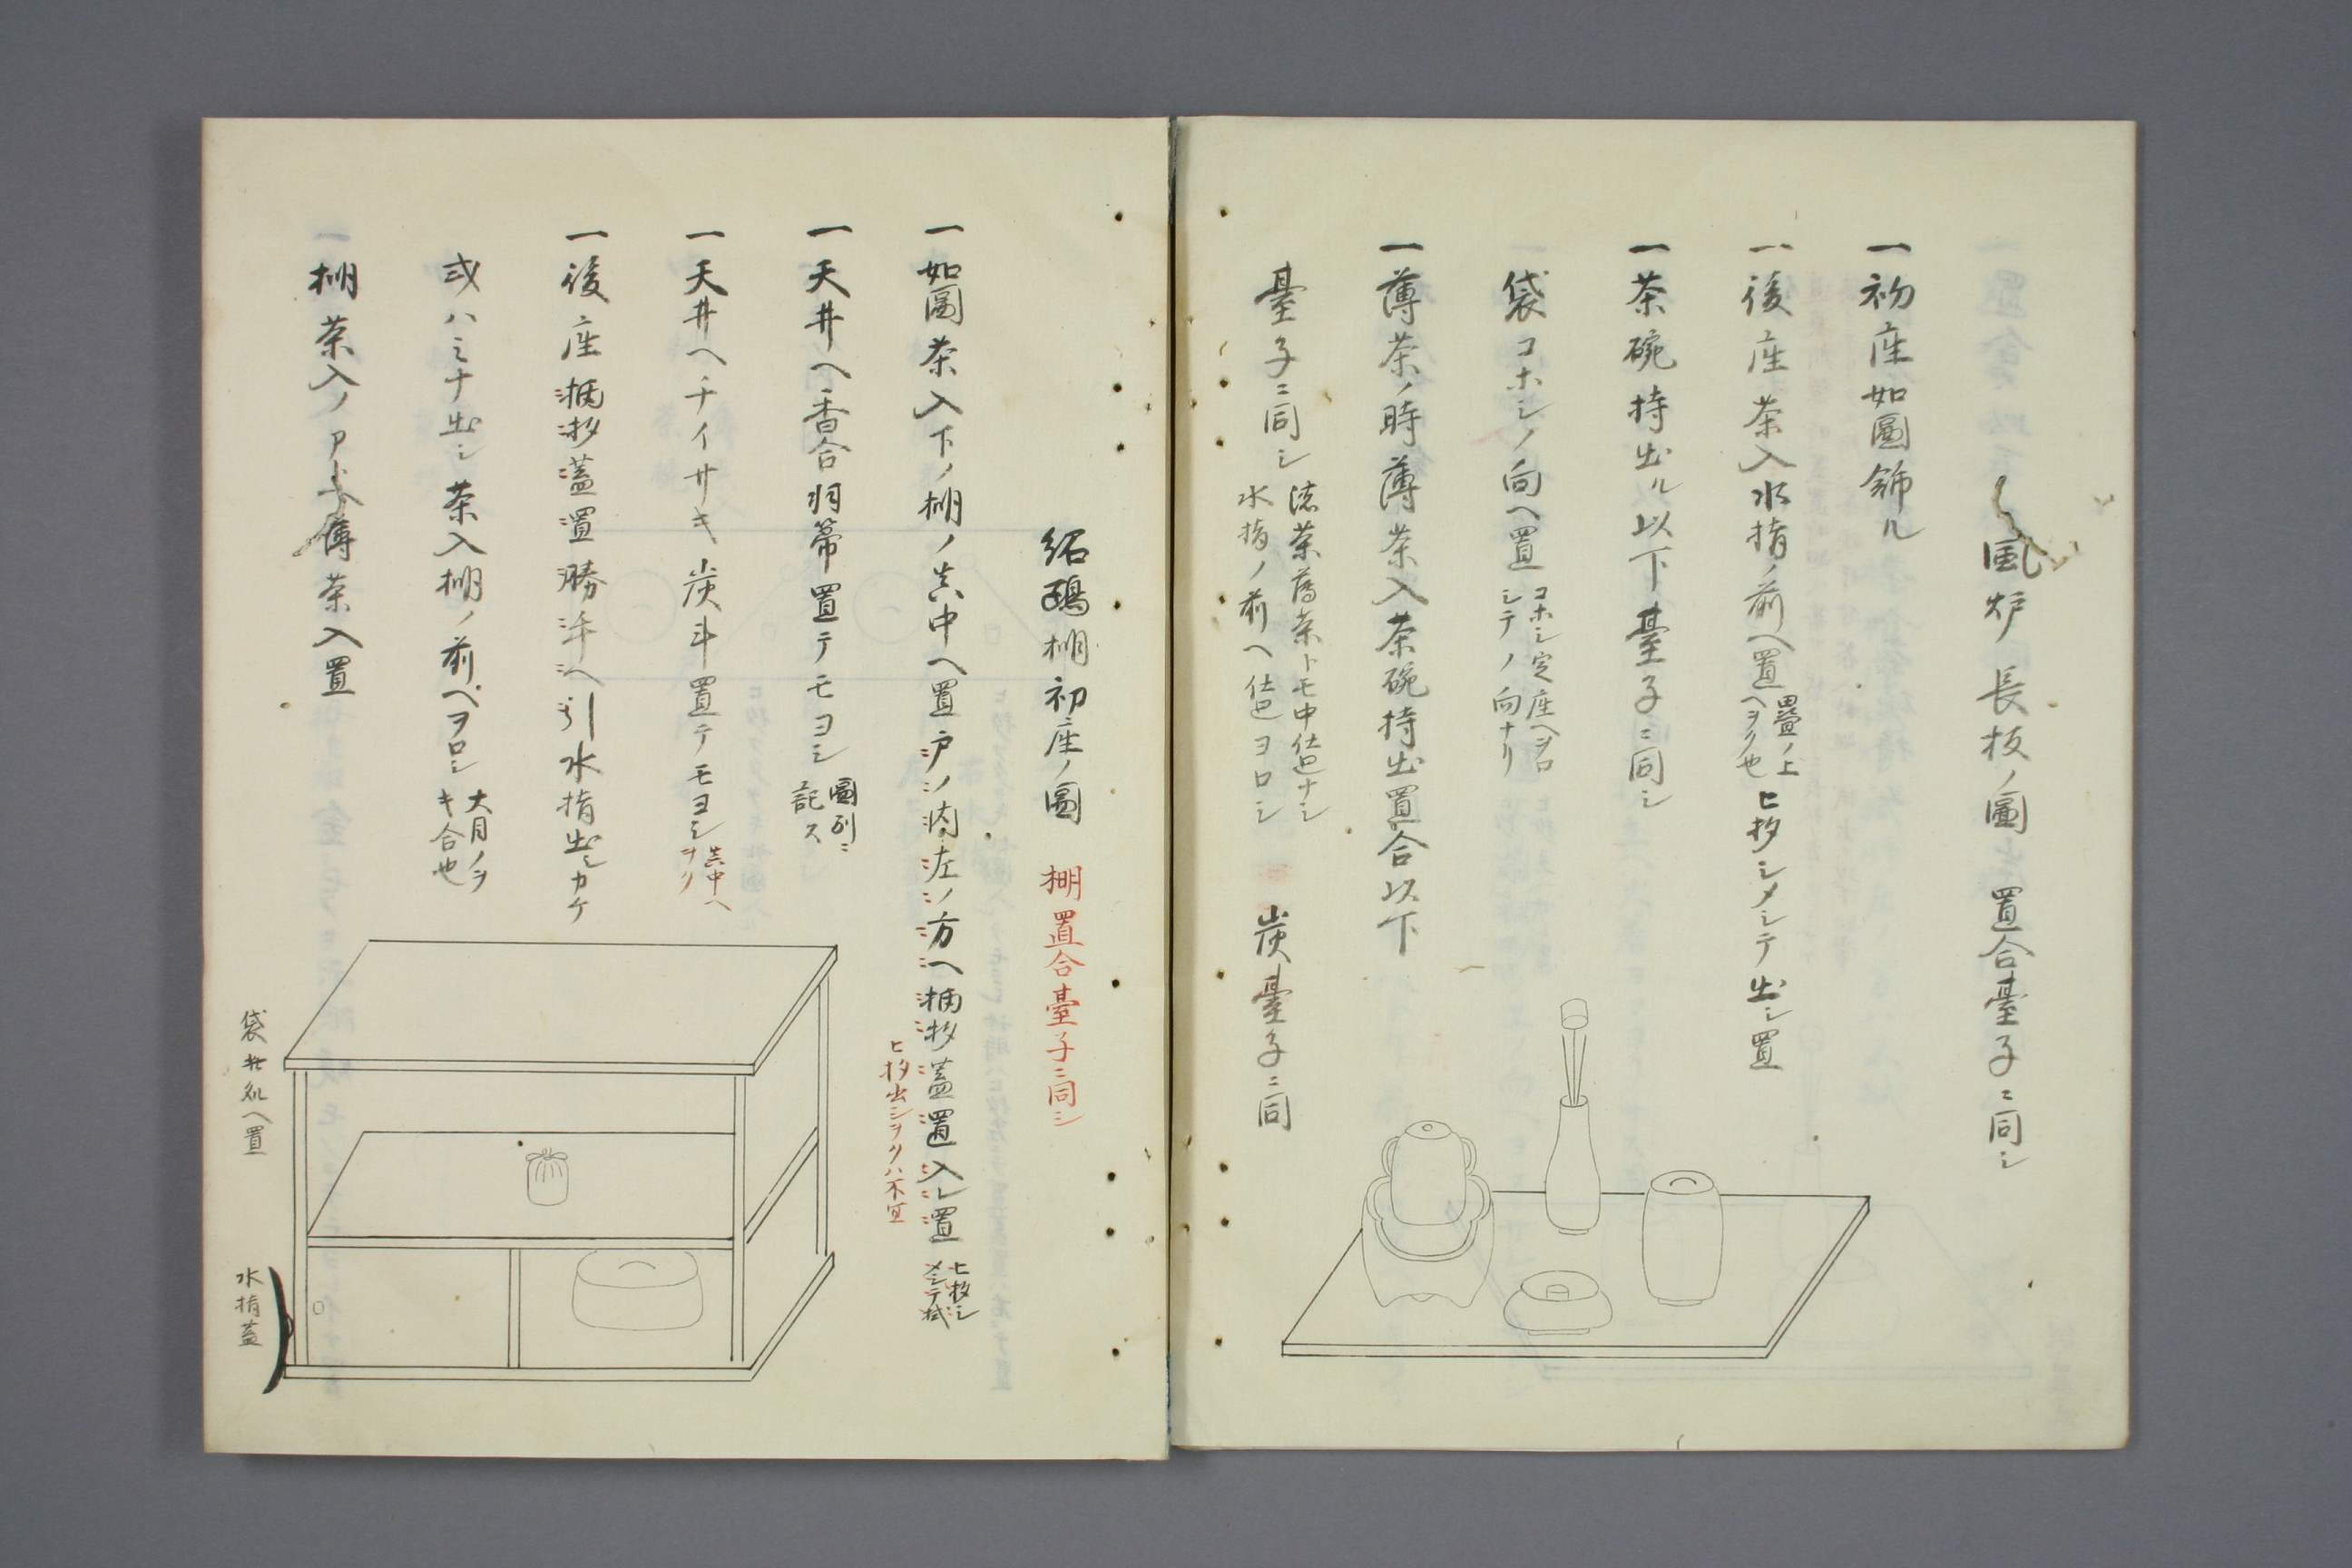 風炉長板ノ圖 置合臺子ニ同シ
一初座如圖飾ル
一後座茶入水指ノ前ヘ置
畳ノ上
ヘヲク也
ヒ抄シメシテ出シ置
一茶碗持出ル以下臺子ニ同シ
袋コホシノ向ヘ置
コホシ定座ヘヲロ
シテノ向ナリ
一薄茶ノ時薄茶入茶碗持出置合以下
臺子ニ同シ
濃茶薄茶トモ中仕廻ナシ
水指ノ前ヘ仕廻ヨロシ
炭臺子ニ同
紹鴎棚初座ノ圖 棚置合臺子ニ同シ
一如圖茶入下ノ棚ノ真中ヘ置戸ノ内左ノ方ヘ柄杓蓋置入レ置
ヒ抄シ
メシテ拭
ヒ抄出シヲクハ不宜
一天井ヘ香合羽箒置テモヨシ
圖別ニ
記ス
一天井ヘチイサキ炭斗置テモヨシ
真中ヘ
ヲク
一後座柄杓蓋置勝手ヘ引水指出シカケ
或ハミナ出シ茶入棚ノ前ヘヲロシ
大目ノヲ
キ合也
一棚茶入ノアトヘ薄茶入置
袋
ヘ置
水指蓋